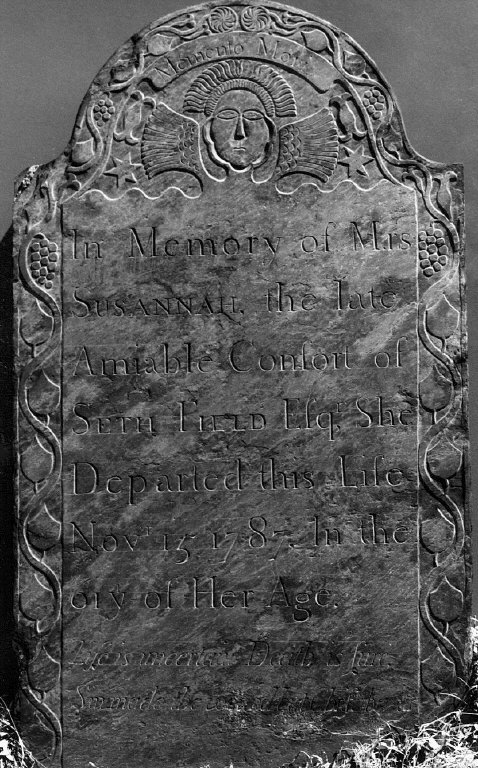 Memento Mori
In Memory of Mrs
SUSANNAH, the late
Amiable Conſort of
SETH FIELD Eſqr. She
Departed this Life
Novr. 15 1787, In the
of Her Age.
Life is uncertain Death is ſure
Sin made the wound